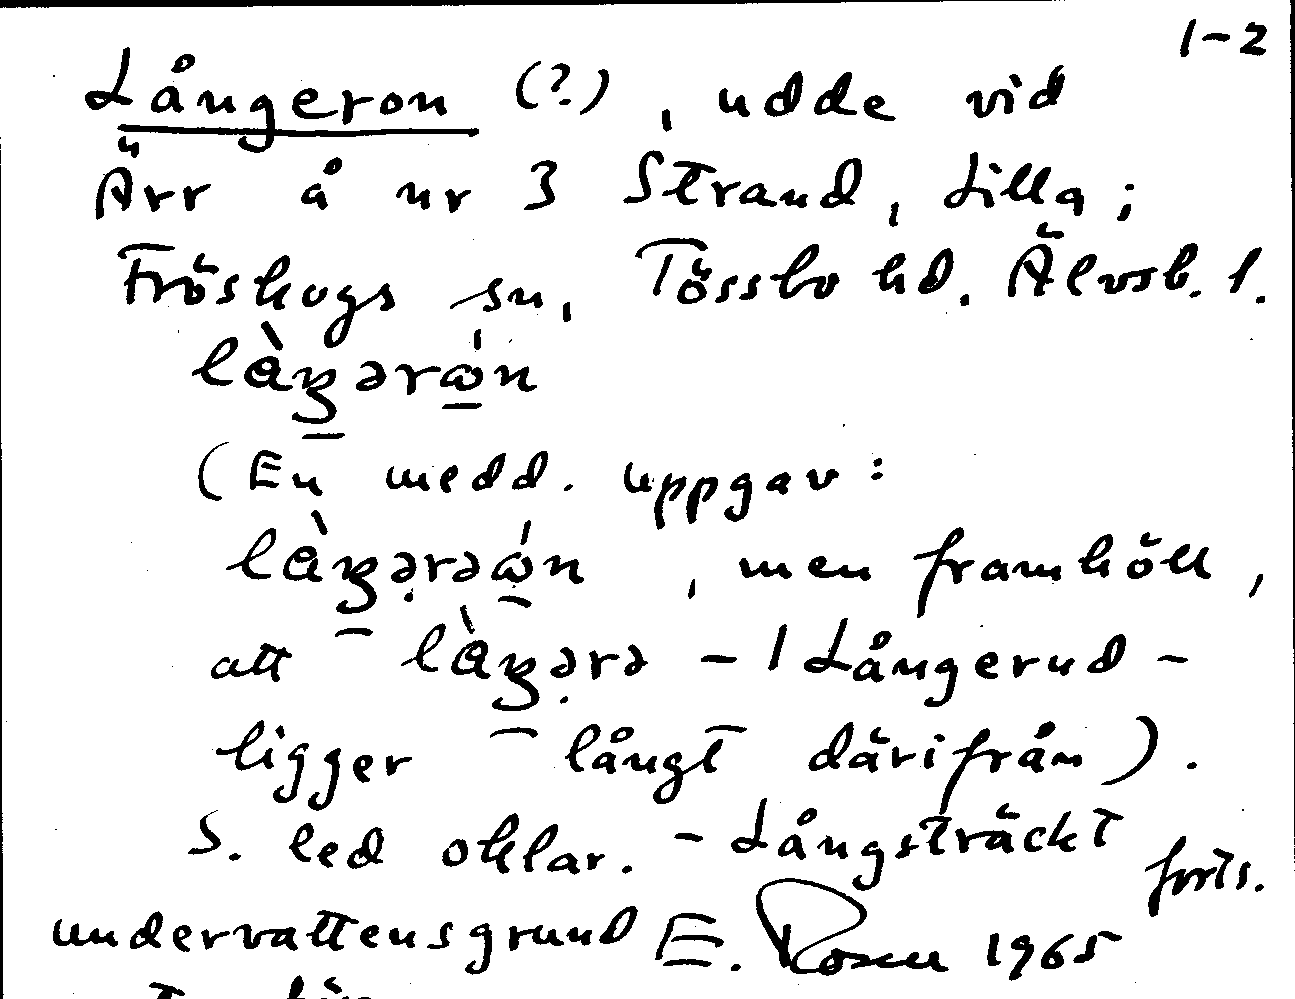 1-2
Långeron (?), udde vid
Ärr å nr 3 Strand, Lilla;
Fröskogs sn, Tössbo hd. Älvsb. l.
(En medd. uppgav:
, men framhöll,
att - / Långerud -
ligger långt därifrån).
S. led oklar. - Långsträckt
forts.
undervattensgrund E. Rosen 1965